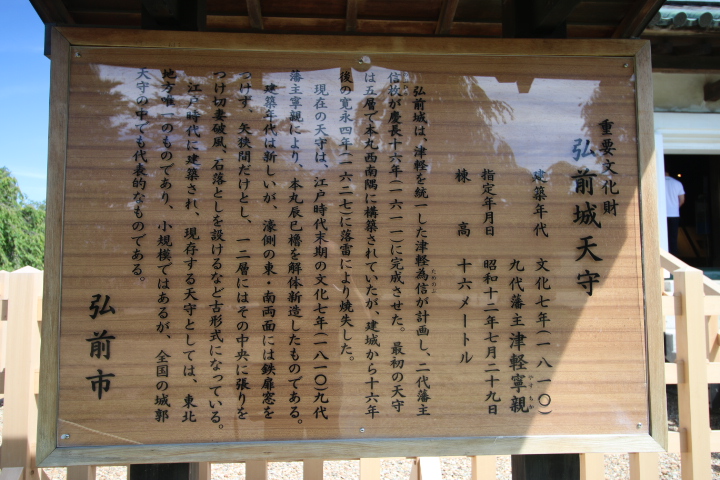 重要文化財
弘前城天守
建築年代 文化七年(一八一〇)
九代藩主津軽寧親
やすちか
指定年月日 昭和十二年七月二十九日
棟高 十六メートル
弘前城は、津軽を統一した津軽為信が計画し、二代藩主
ためのぶ
信牧が慶長十六年(一六一一)に完成させた。最初の天守
は五層で本丸西南隅に構築されていたが、建城から十六年
後の寛永四年(一六二七)に落雷により焼失した。
現在の天守は、江戸時代末期の文化七年(一八一〇)九代
藩主寧親により、本丸辰巳櫓を解体新造したものである。
建築年代は新しいが、濠側の東・南両面には鉄扉窓を
つけず、矢狭間だけとし、一二層にはその中央に張りを
つけ切妻破風、石落としを設けるなど古形式になっている。
江戸時代に建築され、現存する天守としては、東北
地方唯一のものであり、小規模ではあるが、全国の城郭
天守の中でも代表的なものである。
弘前市